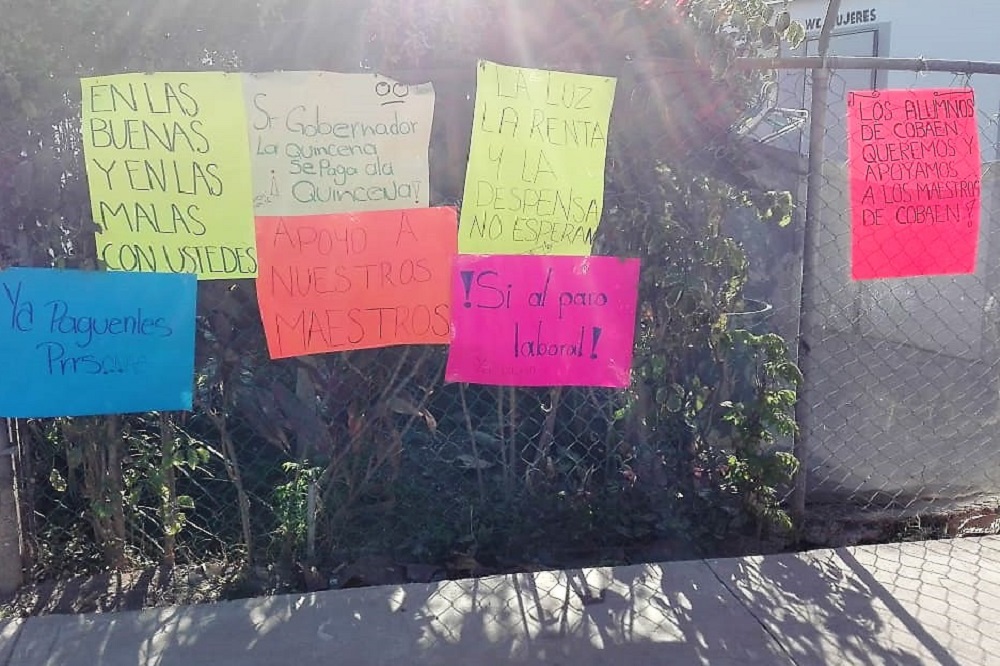 EN LAS
BUENAS
Y EN LAS
MALAS
CON USTEDES
Sr Gobernador
La Quincena
Se Paga ala
¡Quincena!
LA LUZ
LA RENTA
Y LA
DESPENSA
NO ESPERAN
WC MUJERES
LOS ALUMNOS
DE COBAEN
QUEREMOS Y
APOYAMOS
A LOS MAESTROS
DE COBAEN!
Ya Paguenles
Prrs...
APOYO A
NUESTROS
MAESTROS
!Si al paro
laboral!